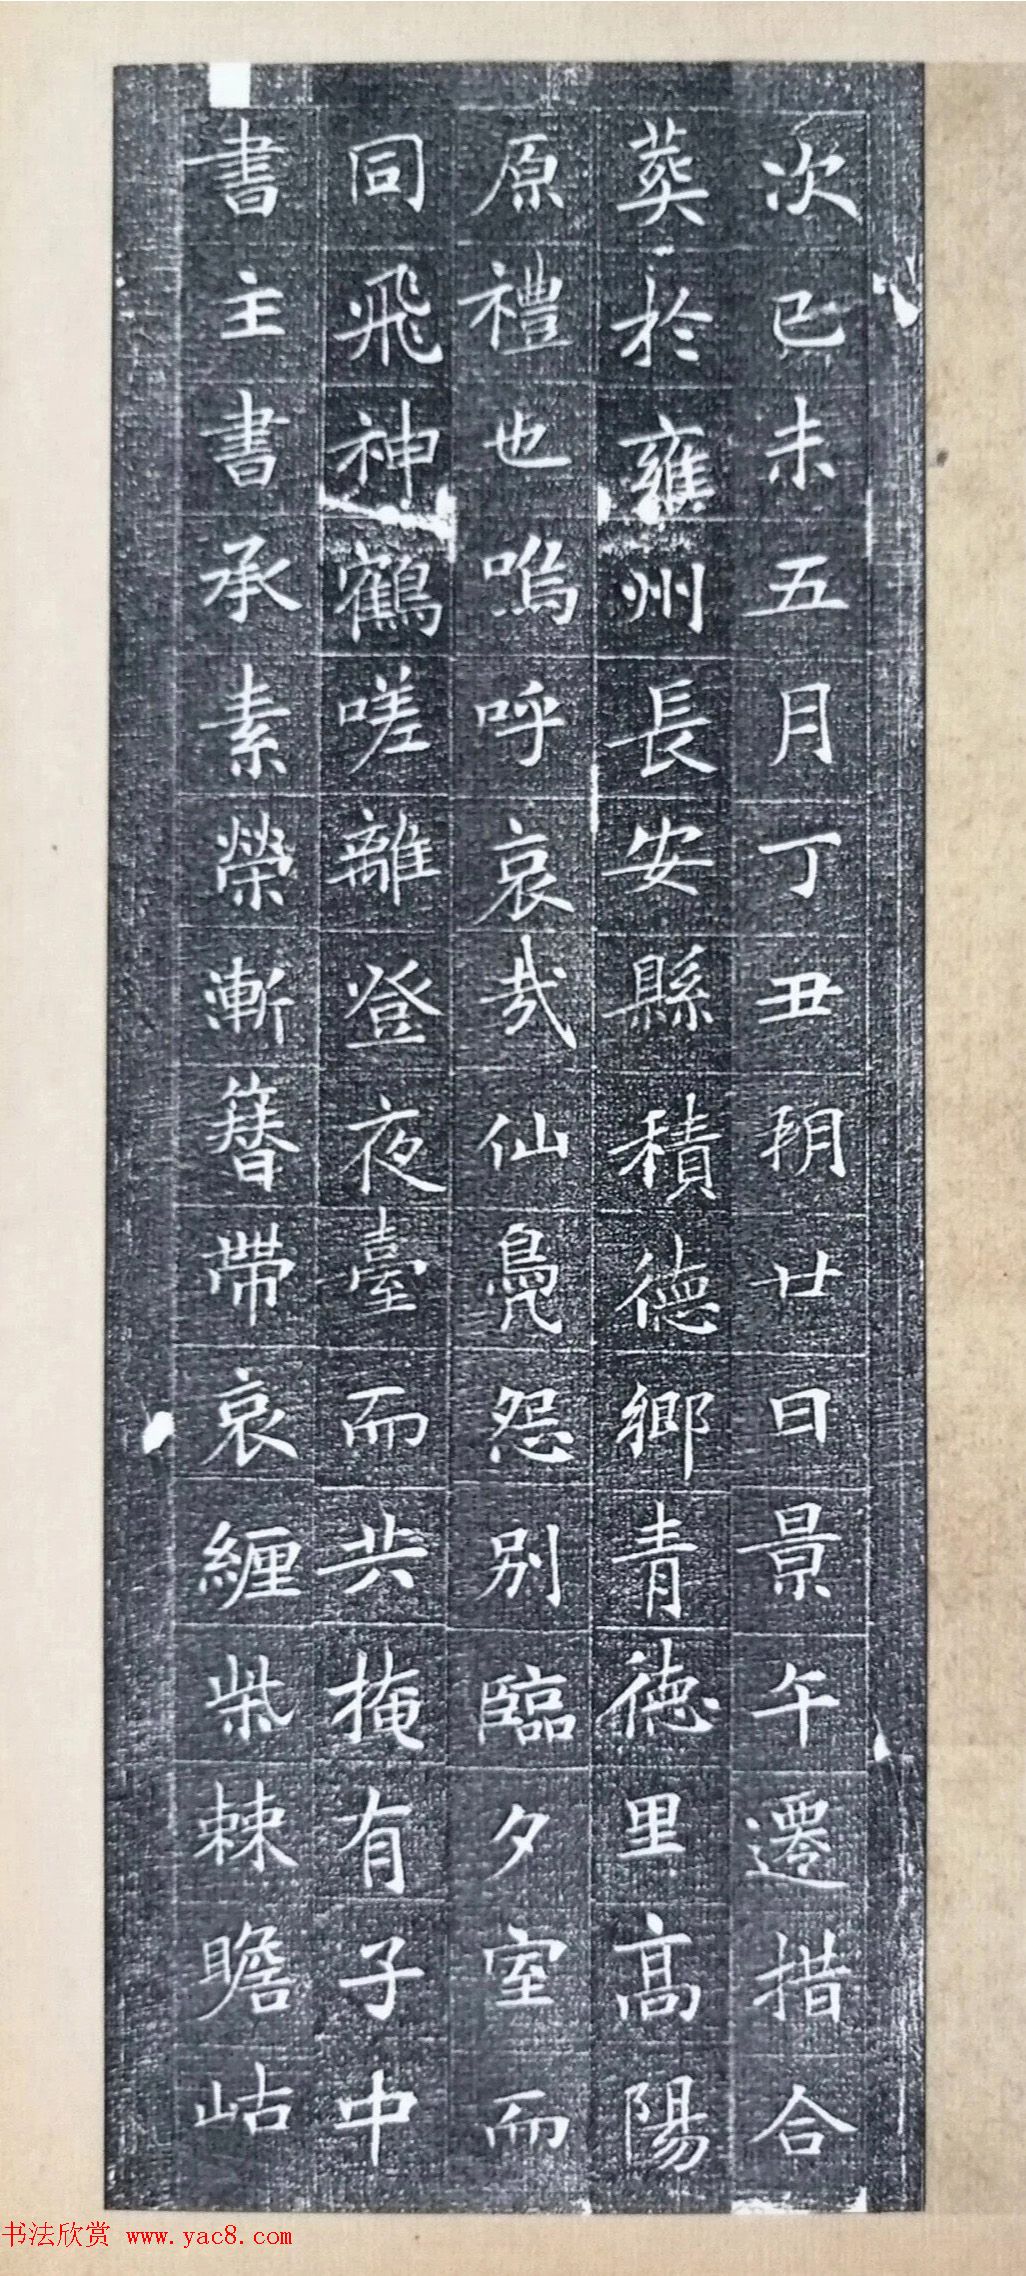 次己未五月丁丑朔廿日景午遷措合
葬於雍州長安縣積德鄉青德里高陽
原禮也嗚呼哀哉仙鳧怨別臨夕室而
同飛神鶴嗟離登夜臺而共掩有子中
書主書承素榮漸簪帶哀纏柴棘瞻岵
书法欣赏 www.yac8.com